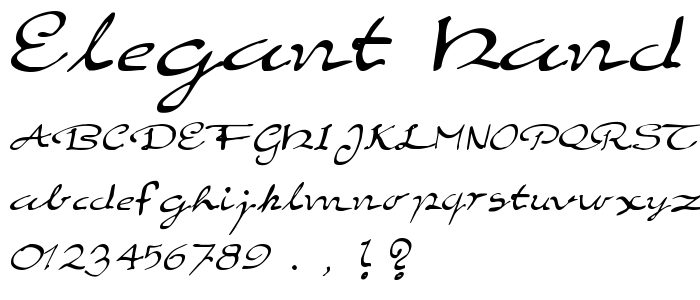 Elegant Hand
ABCDEFGHIJKLMNOPQRST
abcdefghijklmnopqrstuvwxyz
0123456789 . , ! ?